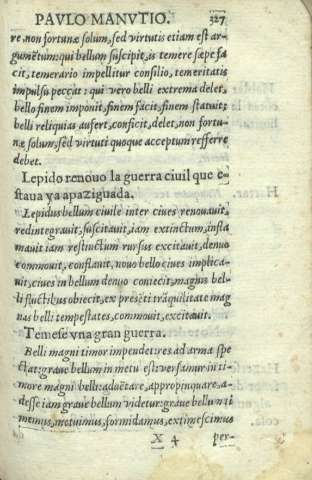 PAVLO MANVTIO. 327
re, non fortunæ solum, sed virtutis etiam est ar-
gumētum: qui bellum suscipit, is temere sæpe fa
cit, temerario impellitur consilio, temeritatis
impulsu peccat: qui vero belli extrema delet,
bello finem imponit, finem facit, finem statuit,
belli reliquias aufert, conficit, delet, non fortu-
næ solum, sed virtuti quoque acceptum referre
debet.
Lepido renouo la guerra ciuil que e-
staua ya apaziguada.
Lepidus bellum ciuile inter ciues renouauit,
redintegrauit, suscitauit, iam extinctum, infla
mauit iam restinctum rursus excitauit, denuo
commouit, conflauit, nouo bello ciues implica-
uit, ciues in bellum denuo coniecit, magnis bel-
li fluctibus obiecit, ex presēti trāquilitate mag
nas belli tempestates, commouit, excitauit.
Temese vna gran guerra.
Belli magni timor impendet, res ad arma spe
ctat: graue bellum in metu est: versamur in ti
more magni belli: aduētare, appropinquare, a-
desse iam graue bellum videtur: graue bellum ti
memus, metuimus, formidamus, extimescimus
X 4 per-